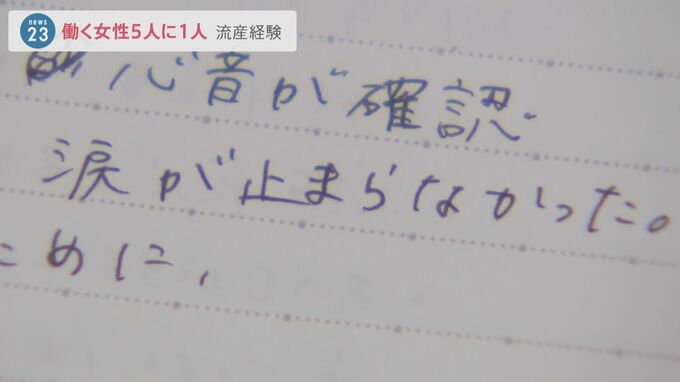 news 23 働く女性5人に1人 流産経験
心音が確認
涙が止まらなかった。
めに、